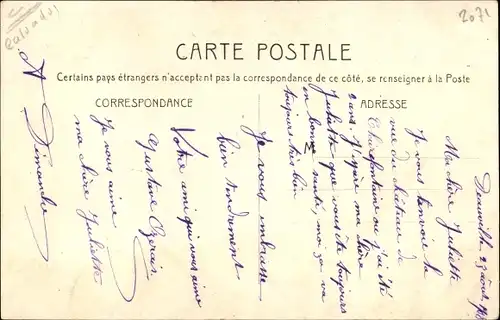 Calvados
2071
CARTE POSTALE
Certains pays étrangers n'acceptent pas la correspondance de ce côté, se renseigner à la Poste
CORRESPONDANCE
ADRESSE
M
Deauville 23 août
Ma chère Juliette
Je vous envoie la
vue du château de
où j'ai été
2 ans. J'espère ma chère
Juliette que vous ête toujours
en bonne santé, moi ça va
toujours très bien
Je vous embrasse
bien tendrement
Votre ami qui vous aime
Gustave
Je vous aime
ma chère Juliette
A Dimanche